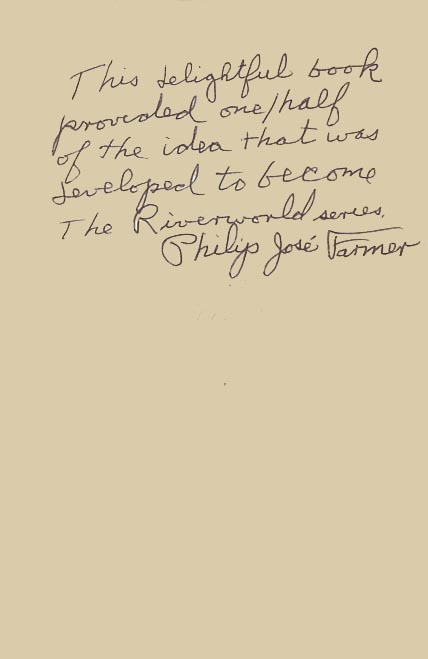 This delightful book
provided one/half
of the idea that was
developed to become
The Riverworld series.
Philip José Farmer